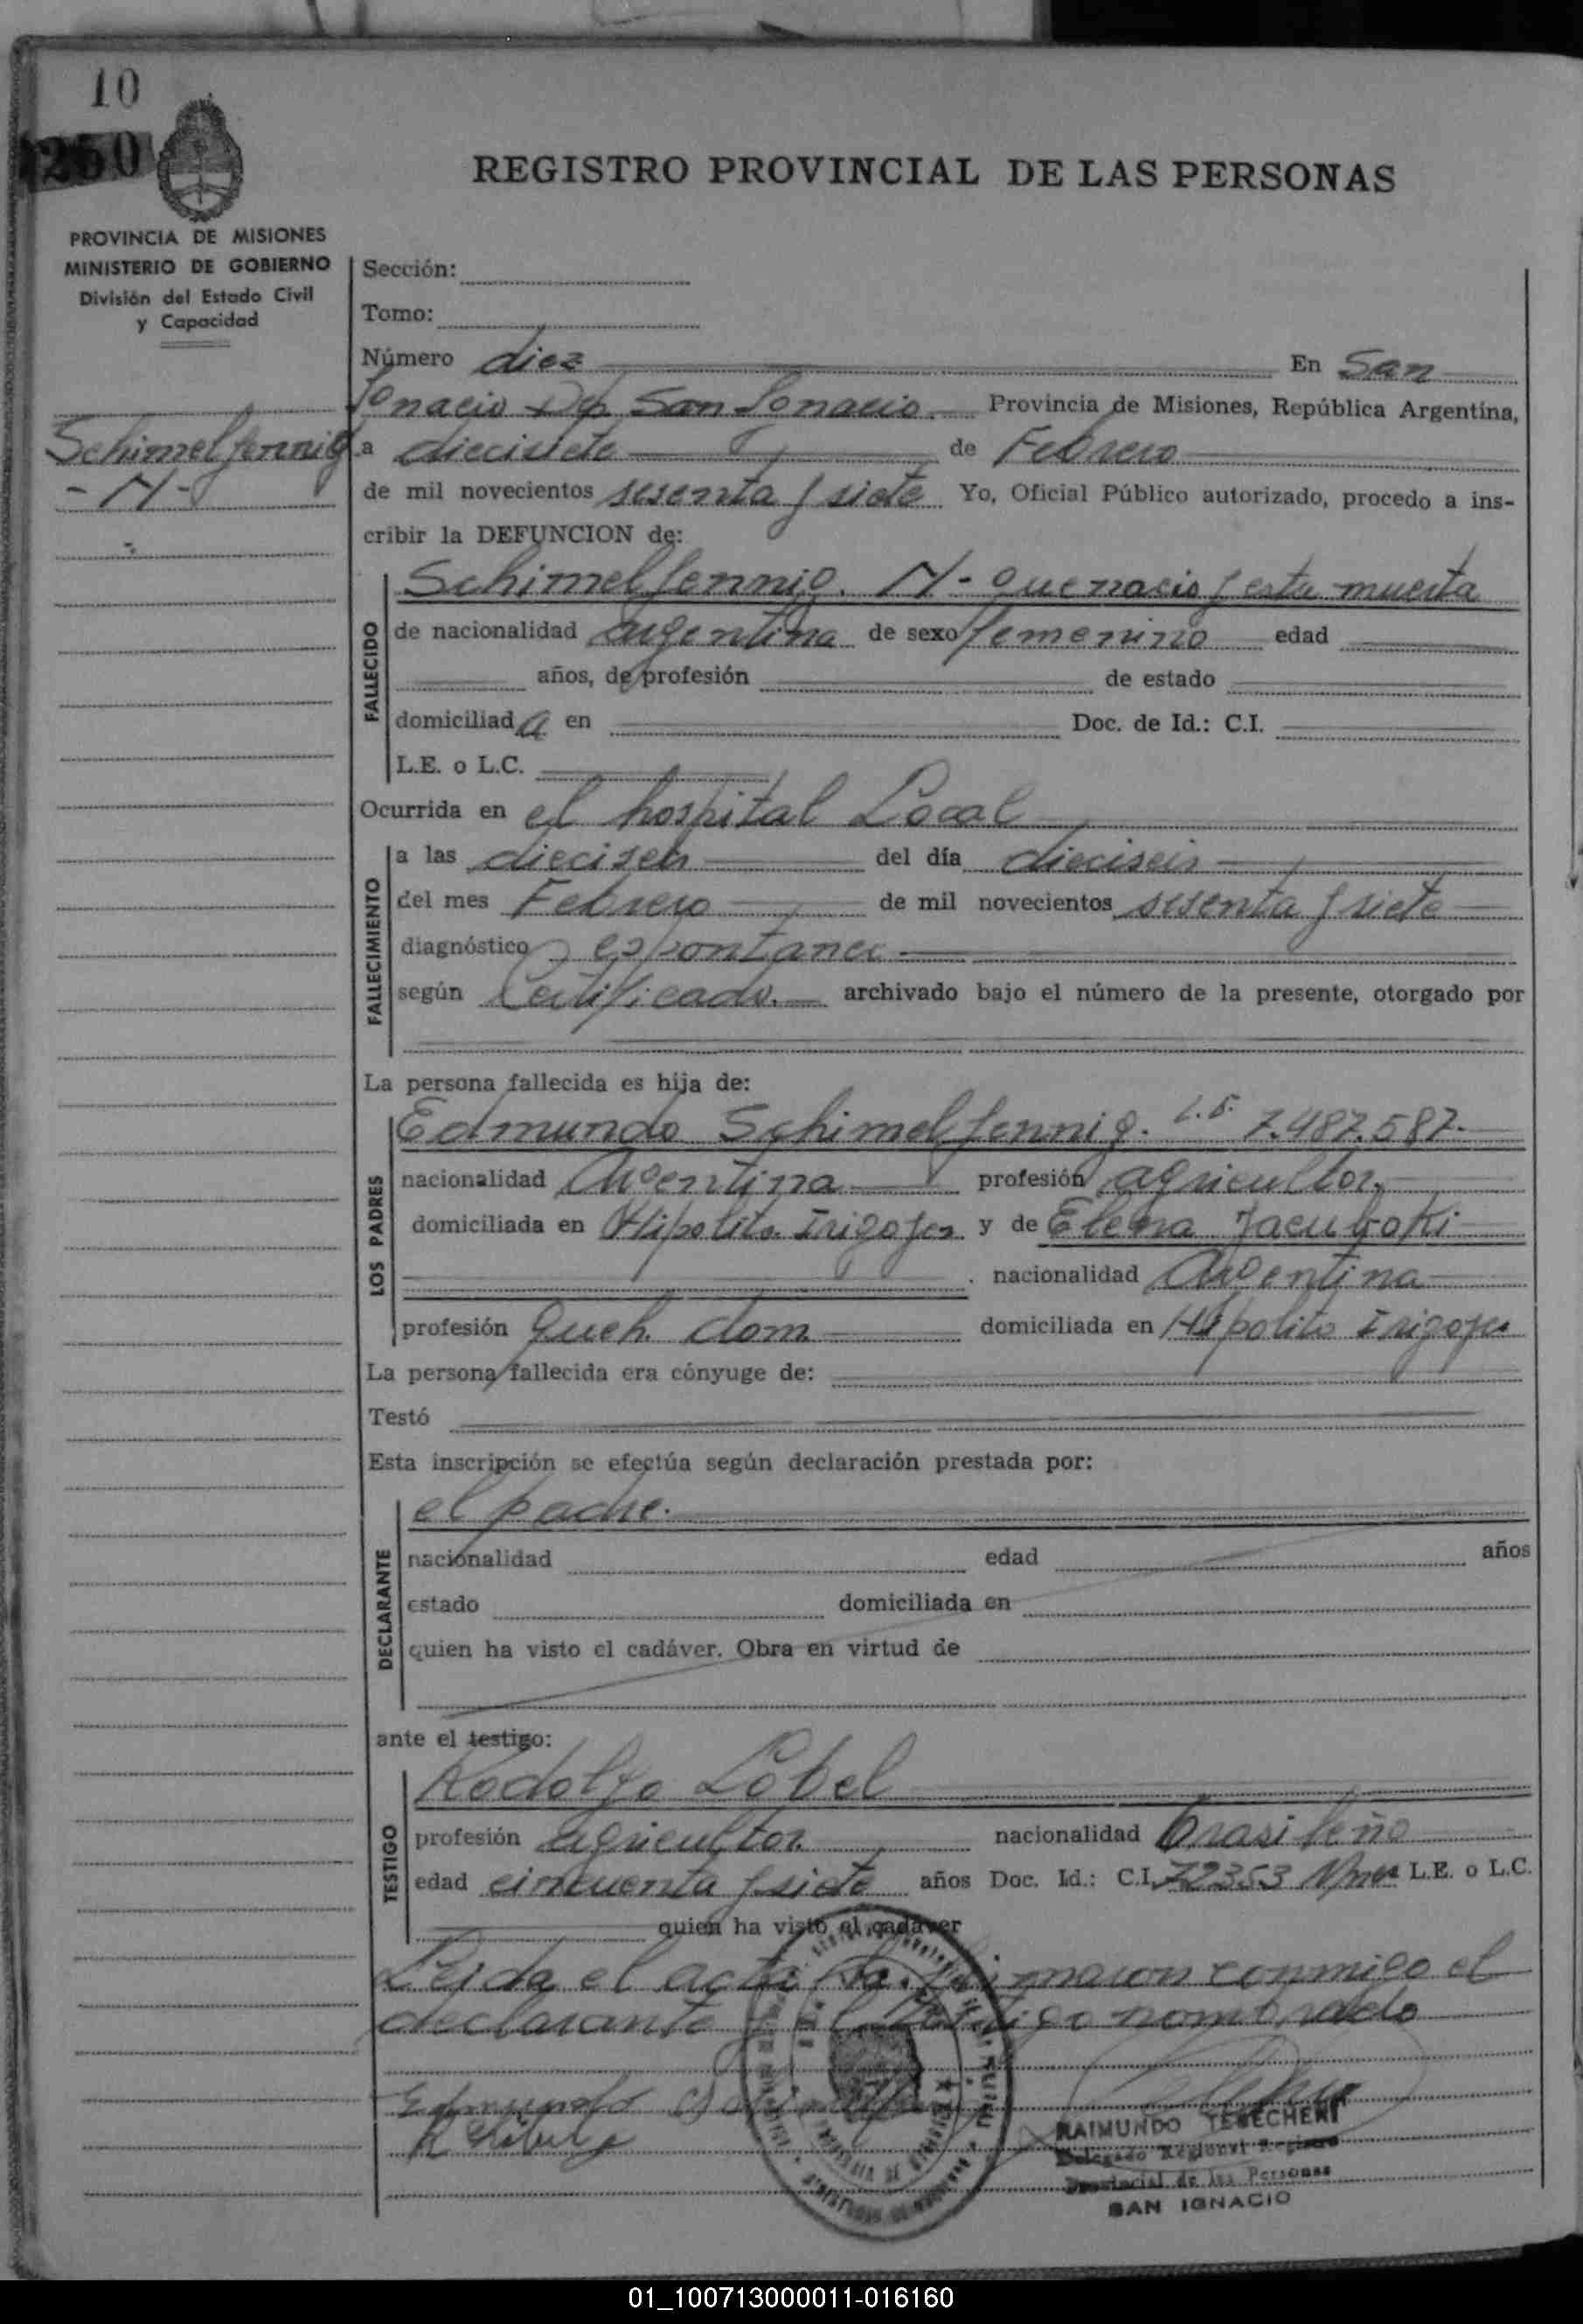 10
250
REGISTRO PROVINCIAL DE LAS PERSONAS
PROVINCIA DE MISIONES
MINISTERIO DE GOBIERNO
División del Estado Civil
y Capacidad
Schimelfennig
- N -
Sección:
Tomo:
Número diez En San
Ignacio Dep San Ignacio. Provincia de Misiones, República Argentina,
a diecisiete de Febrero
de mil novecientos sesenta y siete Yo, Oficial Público autorizado, procedo a ins-
cribir la DEFUNCION de:
FALLECIDO
Schimelfennig. N - que nacio y esta muerta
de nacionalidad argentina de sexo femenino edad
años, de profesión de estado
domiciliad a en Doc. de Id.: C.I.
L.E. o L.C.
Ocurrida en el hospital Local
FALLECIMIENTO
a las dieciseis del día dieciseis
del mes Febrero de mil novecientos sesenta y siete
diagnóstico espontanea
según Certificado. archivado bajo el número de la presente, otorgado por
La persona fallecida es hija de:
LOS PADRES
Edmundo Schimelfennig. L.E. 7.487.587.
nacionalidad Argentina profesión agricultor.
domiciliada en Hipolito Irigoyen y de Elena Jacuboki
nacionalidad Argentina
profesión Queh. dom domiciliada en Hipolito Irigoyen
La persona fallecida era cónyuge de:
Testó
Esta inscripción se efectúa según declaración prestada por:
DECLARANTE
el padre.
nacionalidad edad años
estado domiciliada en
quien ha visto el cadáver. Obra en virtud de
ante el testigo:
TESTIGO
Rodolfo Lobel
profesión agricultor nacionalidad brasileño
edad cincuenta y siete años Doc. Id.: C.I. 72353 Mnes L.E. o L.C.
quien ha visto el cadáver
Leida el acta la firmaron conmigo el
declarante y el testigo nombrado
Edmundo
RAIMUNDO TENECHENY
Delegado Regional Registro
Provincial de las Personas
SAN IGNACIO
01_100713000011-016160